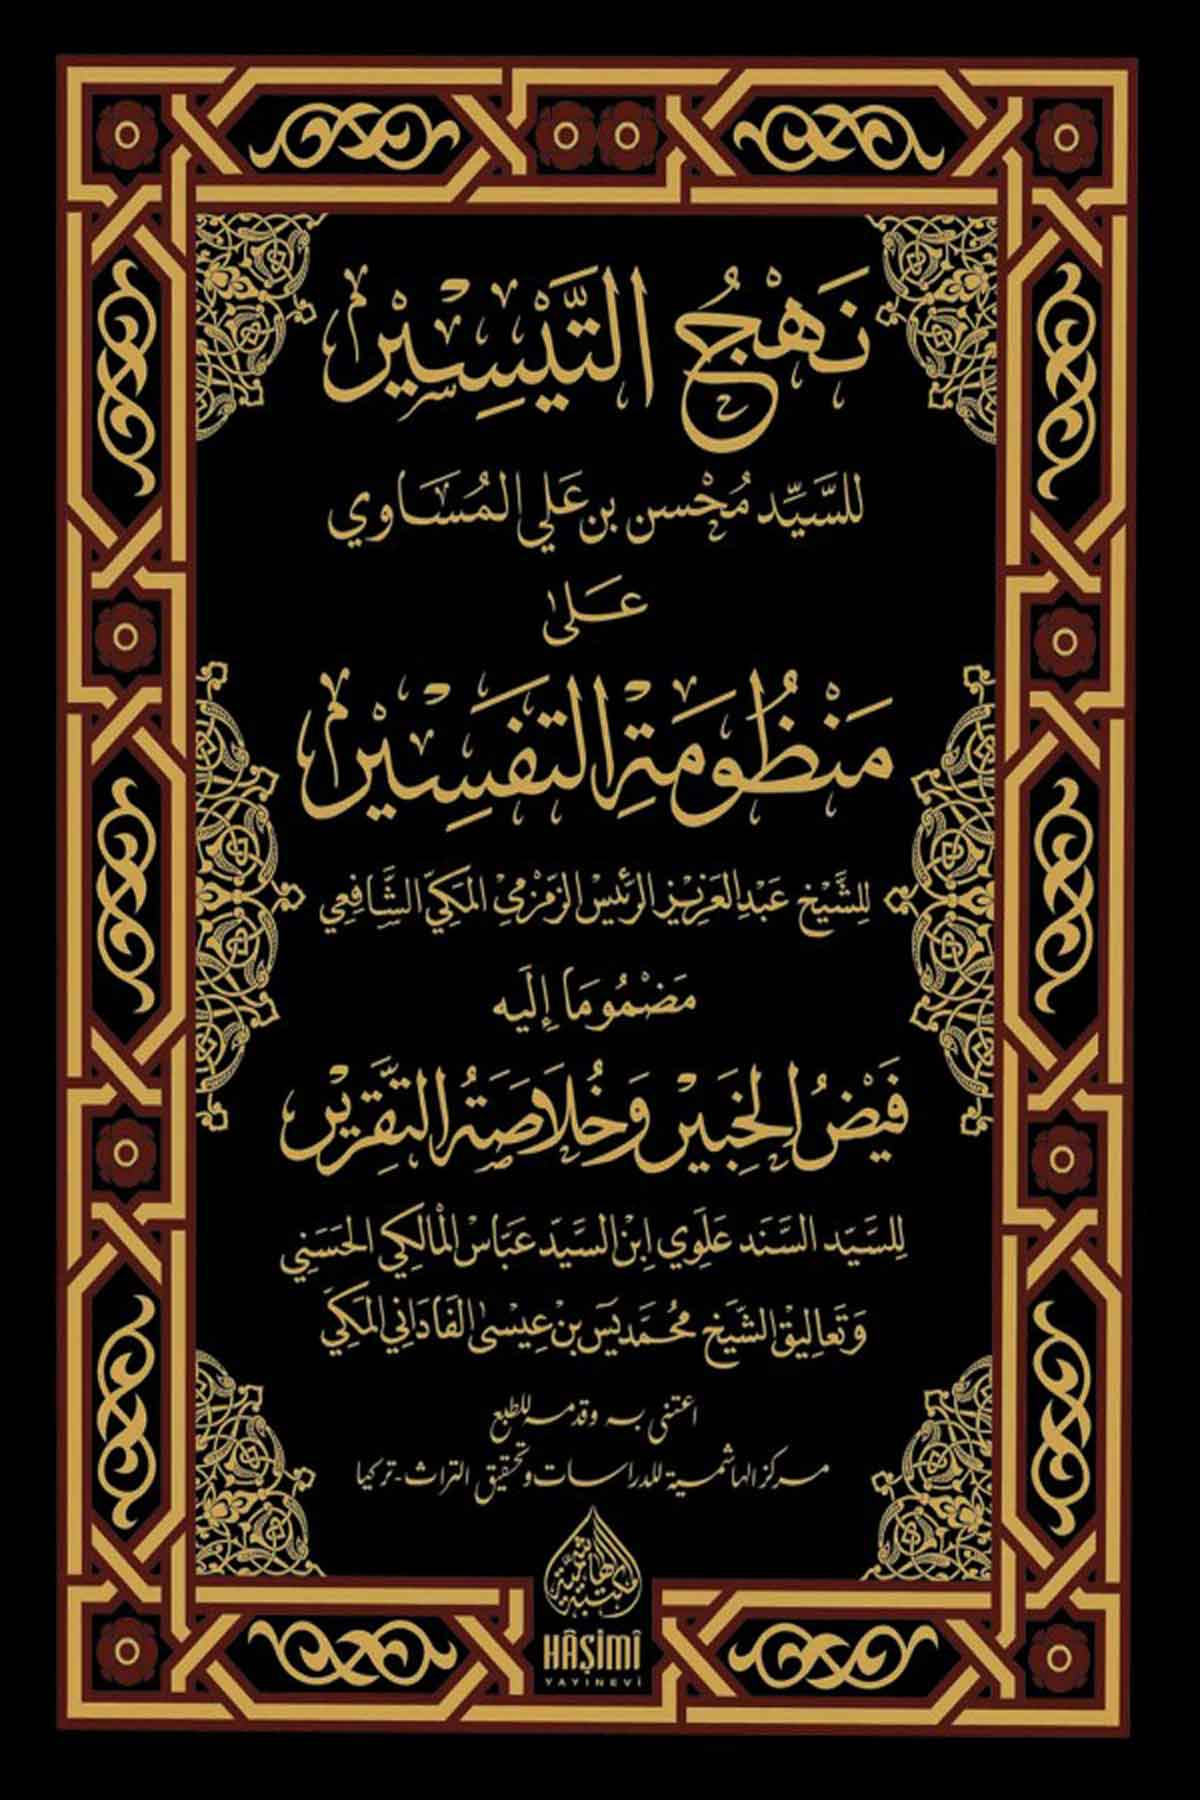 نَهْجُ التَّيْسِيْرِ
للسَّيِّد مُحْسن بن عَلي المُسَاوي
عَلىٰ
مَنْظُومَةِ التَّفْسِيْرِ
لِلشَّيْخ عَبْدِ العَزِيْزِ الرَّئيْسِ الزَّمْزَمِيْ المَكِيّ الشَّافِعِي
مَضْمُومَا إِلَيه
فَيْضُ الخَبِيْرِ وَخُلَاصَةُ التَّقْرِيْرِ
لِلسَّيّد السَّنَد عَلَوِي ابْن السَّيّد عَبَّاس الْمَالِكِي الحَسَنِي
وَتَعالِيْق الشَّيْخ مُحَمَّد يٰسَ بن عِيسىٰ الفَادَاني المَكِّي
اعتنى به وقدمه للطبع
مركز الهاشمية للدراسات وتحقيق التراث - تركيا
مكتبة الهاشمية
HÂŞİMÎ
YAYINEVİ